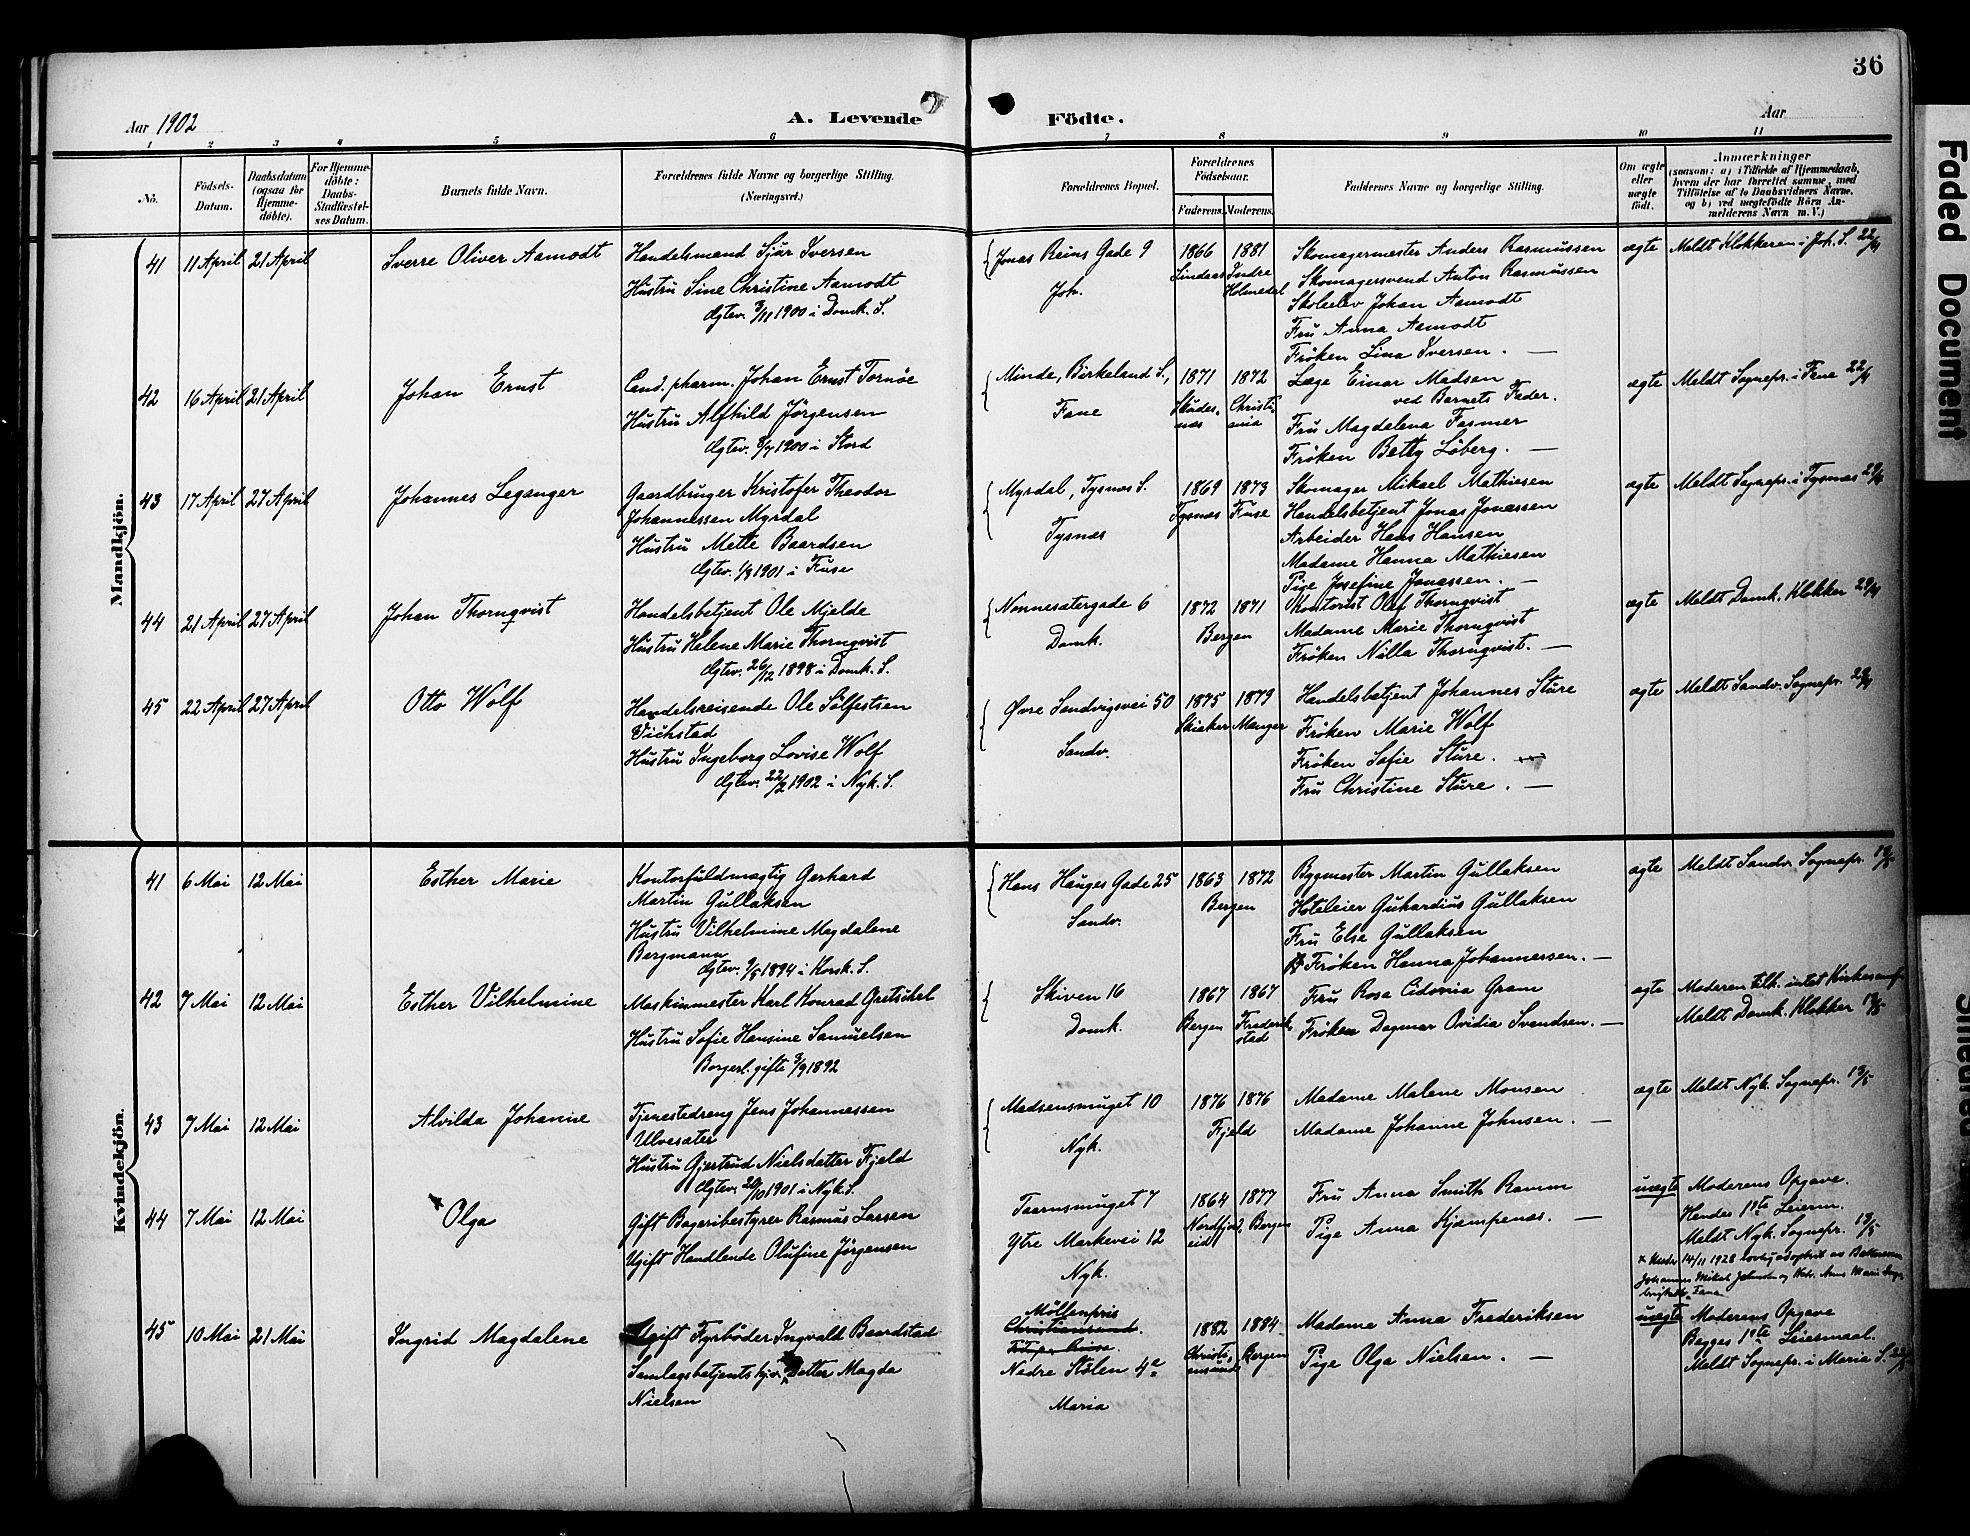 36
Aar 1902
A. Levende Födte.
Aar
1 2 3 4 5 6 7 8 9 10 11
No.
Födsels-Datum.
Daabsdatum (ogsaa for Hjemme-döbte).
For Hjemme-döbte: Daabs-Stadfæstel-ses Datum.
Barnets fulde Navn.
Forældrenes fulde Navne og borgerlige Stilling.
(Næringsvei.)
Forældrenes Bopæl.
Forældrenes Födselsaar.
Faderens. Moderens.
Faddernes Navne og borgerlige Stilling.
Om ægte eller uægte födt.
Anmærkninger
(saasom: a) i Tilfælde af Hjemmedaab,
hvem der har forrettet samme, med
Tilföielse af to Daabsvidners Navne,
og b) ved uægtefödte Börn An-
melderens Navn m. V.)
Mandkjön.
41 11 April 21 April Sverre Oliver Aamodt
Handelsmand Sjur Iversen
Hustru Sine Christine Aamodt
Ægtev. 3/11 1900 i Domk. S.
Jonas Reins Gade 9
Joh.
1866 1881
Lindaas Indre Holmedal
Skomagermester Anders Rasmussen
Skomagersvend Anton Rasmussen
Skoleelev Johan Aamodt
Fru Anna Aamodt
Fröken Lina Iversen. —
ægte Meldt Klokkeren i Joh. S. 22/4
42 16 April 21 April Johan Ernst
Cand. pharm. Johan Ernst Tornöe
Hustru Alfhild Jörgensen
Ægtev. 1900 i Stord
Minde, Birkeland S.,
Fane
1871 1872
Skudes-næs Christi-ania
Læge Einar Madsen
ved Barnets Fader.
Fru Magdalena Fasmer
Fröken Betty Löberg. —
ægte Meldt Sognepr. i Fane 22/4
43 17 April 27 April Johannes Leganger
Gaardbruger Kristofer Theodor
Johannessen Myrdal
Hustru Mette Baardsen
Ægtev. 1901 i Fuse
Myrdal, Tysnæs S.
Tysnæs
1869 1873
Tysnæs Fuse
Skomager Mikael Mathiesen
Handelsbetjent Jonas Jonassen
Arbeider Hans Hansen
Madame Hanna Mathiesen
Pige Josefine Jonassen. —
ægte Meldt Sognepr. i Tysnæs 29/4
44 21 April 27 April Johan Thornqvist
Handelsbetjent Ole Mjelde
Hustru Helene Marie Thornqvist
Ægtev. 26/12 1898 i Domk. S.
Nonnesætergade 6
Domk.
1872 1871
Bergen
Kontorist Olaf Thornqvist
Madame Marie Thornqvist
Fröken Nilla Thornqvist. —
ægte Meldt Domk. Klokker 29/4
45 22 April 27 April Otto Wolf
Handelsreisende Ole Sölfestsen
Vichstad
Hustru Ingeborg Lovise Wolf
Ægtev. 22/2 1902 i Nyk. S.
Øvre Sandvigsvei 50
Sandv.
1875 1879
Manger
Handelsbetjent Johannes Sture
Fröken Marie Wolf
Fröken Sofie Sture.
Fru Christine Sture. —
ægte Meldt Sandv. Sognepr. 29/4
Kvindekjön.
41 6 Mai 12 Mai Esther Marie
Kontorfuldmægtig Gerhard
Martin Gullaksen
Hustru Vilhelmine Magdalene
Bergmann
Ægtev. 9/5 1894 i Korsk. S.
Hans Hauges Gade 25
Sandv.
1863 1872
Bergen
Bygmester Martin Gullaksen
Hoteleier Gullaksen
Fru Else Gullaksen
Fröken Hanna Johannessen. —
ægte Meldt Sandv. Sognepr. 13/5
42 7 Mai 12 Mai Esther Vilhelmine
Maskinmester Karl Konrad Gretschel
Hustru Sofie Hansine Samuelsen
Borgerl. gifte 3/9 1892
Skiven 16
Domk.
1867 1867
Bergen Frederik-stad
Fru Rosa Cidonia Gram
Fröken Dagmar Ovidia Svendsen. —
ægte Moderen tilh. intet Kirkesamf.
Meldt Domk. Klokker 13/5
43 7 Mai 12 Mai Alvilda Johanne
Tjenestedreng Jens Johannessen
Ulvesæter
Hustru Gjertrud Nielsdatter Fjeld
Ægtev. 20/10 1901 i Nyk. S.
Madsensmuget 10
Nyk.
1876 1876
Fjeld
Madame Malene Monsen
Madame Johanne Johnsen. —
ægte Meldt Nyk. Sognepr. 13/5
44 7 Mai 12 Mai × Olga
Gift Bageribestyrer Rasmus Larsen
Ugift Handlende Olufine Jörgensen
Taarnsmuget 7
Ytre Markevei 12
Nyk.
1864 1877
Nordfjord-eid Bergen
Fru Anna Smith Ramm
Pige Anna Kjempenæs. —
uægte Moderens Opgave.
Hendes 1ste Leierm.
Meldt Nyk. Sognepr. 13/5
× Under 14/11 1928 lovlig adoptert av
Johannes Mikal Johnsen og Hstr. Anna Marie
Fana
45 10 Mai 21 Mai Ingrid Magdalene
Ugift Fyrböder Ingvald Baardstad
Samlagsbetjents Datter Magda
Nielsen
Möllenpris
Christianssund.
Nedre Stölen 4a
Maria
1882 1884
Christi-anssund Bergen
Madame Anna Frederiksen
Pige Olga Nielsen. —
uægte Moderens Opgave
Begges 1ste Leiermaal.
Meldt Sognepr. i Maria S. 22/5
Faded Document